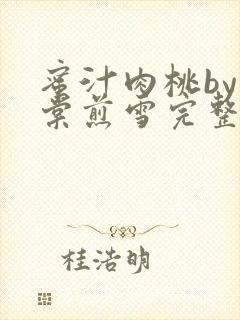 蜜汁肉桃by
棠煎雪完整
桂浩明